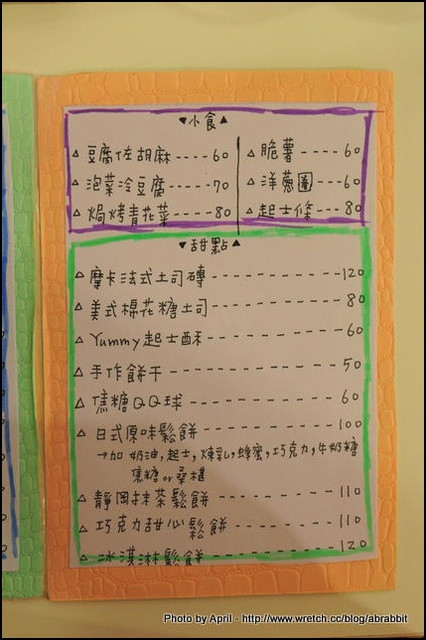 ▼小食▲
△豆腐佐胡麻----60 △脆薯----60
△泡菜冷豆腐----70 △洋蔥圈---60
△焗烤青花菜---80 △起士條---80
▼甜點▲
△摩卡法式土司磚----------120
△美式棉花糖土司----------80
△Yummy起士酥----------60
△手作餅干------------50
△焦糖QQ球-----------60
△日式原味鬆餅----------100
→加奶油,起士,煉乳,蜂蜜,巧克力,牛奶糖
焦糖or桑椹
△靜岡抹茶鬆餅----------110
△巧克力甜心鬆餅---------110
△冰淇淋鬆餅----------120
Photo by April - http://www.wretch.cc/blog/abrabbit